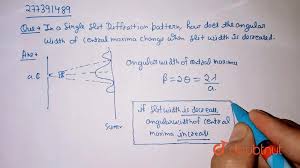 277391489
Que:- In a single slit Diffraction pattern, how does the angular
width of central maxima change when slit width is decreased.
Ans:-
angular width of central maxima
a
θ
β = 2θ = 2λ/a
If slit width is decrease,
angular width of central
maxima increase
Screen
doubtnut